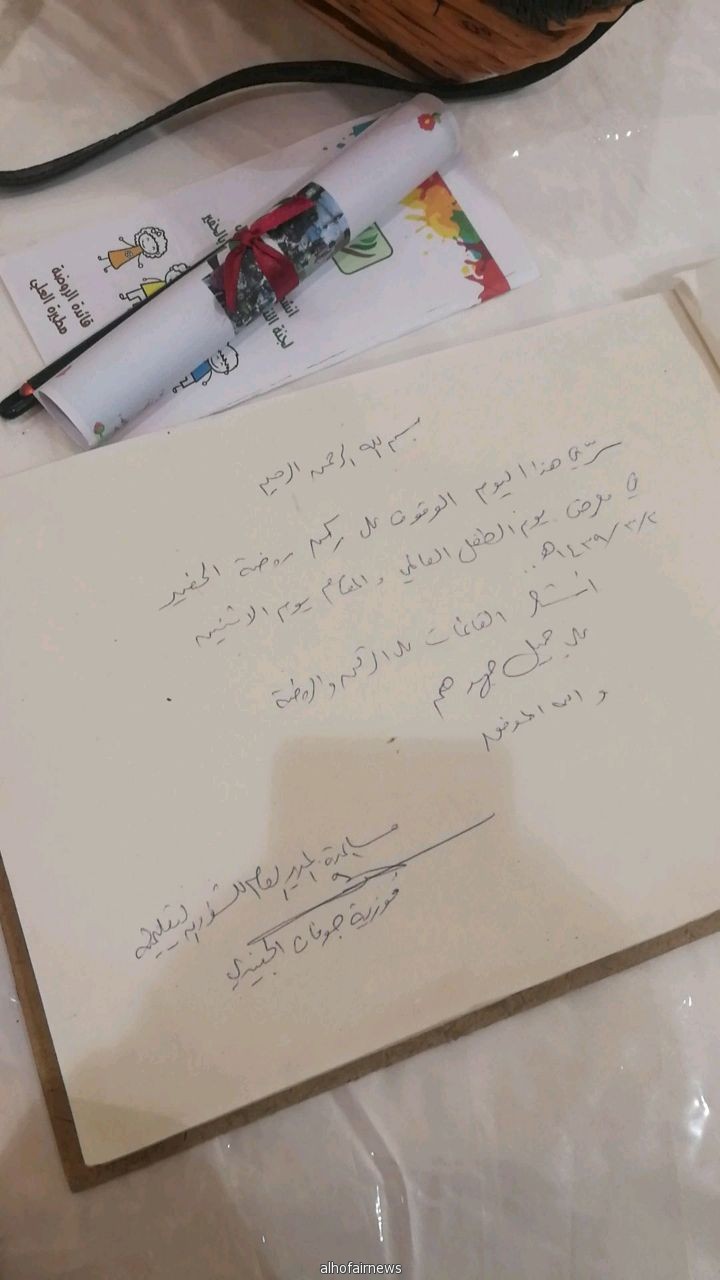 قائدة الروضة
مطيرة العلي
بالحفير
لجنة
بسم الله الرحمن الرحيم
سرّني هذا اليوم الوقوف على ركن روضة الحفير
في معرض يوم الطفل العالمي والمقام يوم الاثنين
١٤٣٩/٣/٢هـ..
أشكر القائمات على الركن والروضة
على جميل جهدهم
والله الموفق
مساعدة المدير العام للشؤون التعليمية
فوزية جوفان الجنيدي
alhofairnews